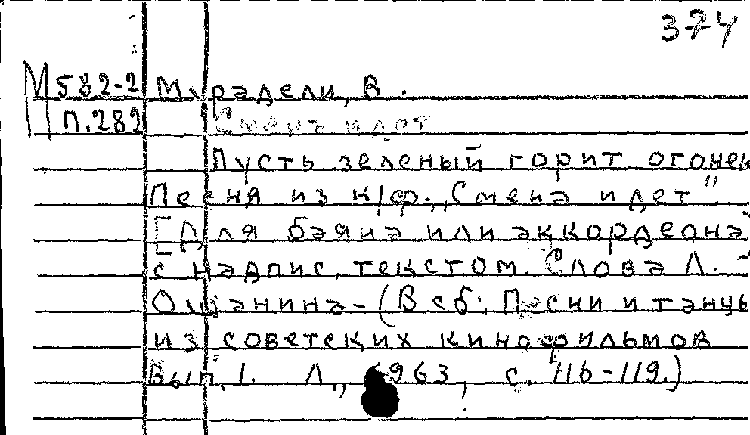 374
М 582-2 Мурадели, В.
П.282 Смена идет
Пусть зеленый горит огонек
Песня из к/ф. „Смена идет"
[Для баяна или аккордеона
с надпис. текстом. Слова Л.
Ошанина-(В сб: Песни и танцы
из советских кинофильмов
Вып. 1. Л., 1963, с. 116-119.)